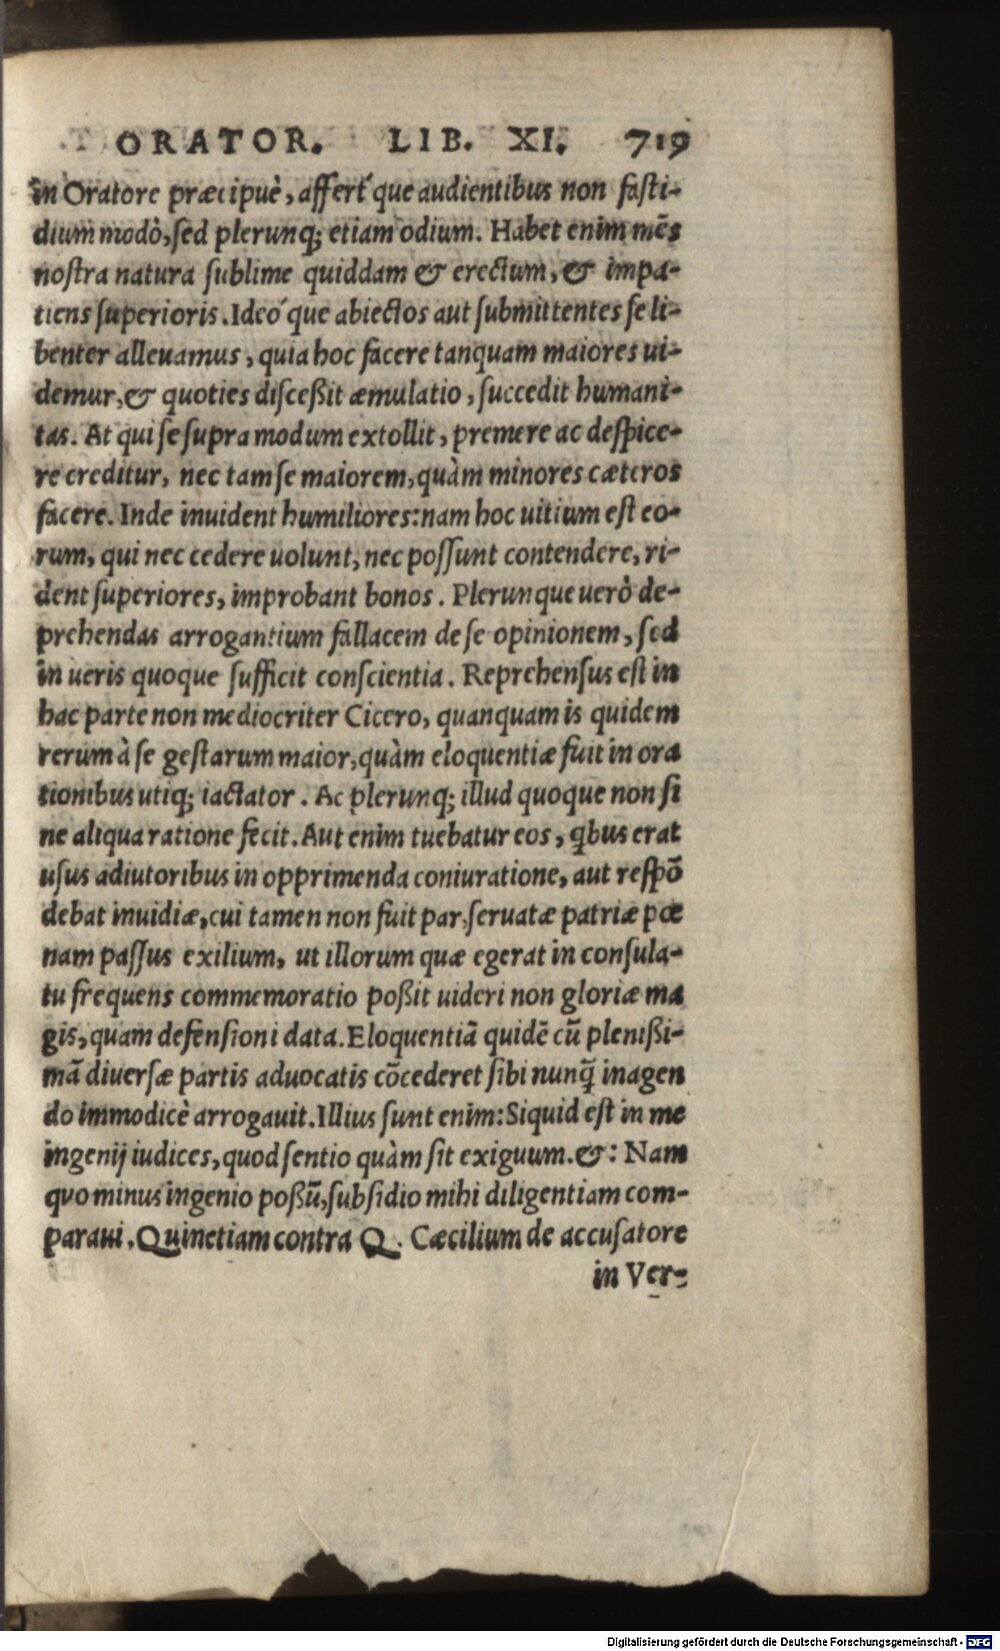 ORATOR. LIB. XI. 719
in Oratore præcipuè, affert́que audientibus non fasti-
dium modò, sed plerunq; etiam odium. Habet enim mẽs
nostra natura sublime quiddam & erectum, & impa-
tiens superioris. Ideó que abiectos aut submittentes se li-
benter alleuamus, quia hoc facere tanquam maiores ui-
demur, & quoties disceßit æmulatio, succedit humani-
tas. At qui se supra modum extollit, premere ac despice-
re creditur, nec tam se maiorem, quàm minores cæteros
facere. Inde inuident humiliores: nam hoc uitium est eo-
rum, qui nec cedere uolunt, nec possunt contendere, ri-
dent superiores, improbant bonos. Plerunque uerò de-
prehendas arrogantium fallacem de se opinionem, sed
in ueris quoque sufficit conscientia. Reprehensus est in
hac parte non mediocriter Cicero, quanquam is quidem
rerum à se gestarum maior, quàm eloquentiæ fuit in ora
tionibus utiq; iactator. Ac plerunq; illud quoque non si
ne aliqua ratione fecit. Aut enim tuebatur eos, q̃bus erat
usus adiutoribus in opprimenda coniuratione, aut respõ
debat inuidiæ, cui tamen non fuit par, seruatæ patriæ pœ
nam passus exilium, ut illorum quæ egerat in consula-
tu frequens commemoratio poßit uideri non gloriæ ma
gis, quam defensioni data. Eloquentiã quidẽ cũ plenißi-
mã diuersæ partis aduocatis cõcederet sibi nunq̃ in agen
do immodicè arrogauit. Illius sunt enim: Siquid est in me
ingenij iudices, quod sentio quàm sit exiguum. &: Nam
quo minus ingenio poßũ, subsidio mihi diligentiam com-
paraui. Quinetiam contra Q. Cæcilium de accusatore
in Ver-
Digitalisierung gefördert durch die Deutsche Forschungsgemeinschaft - DFG